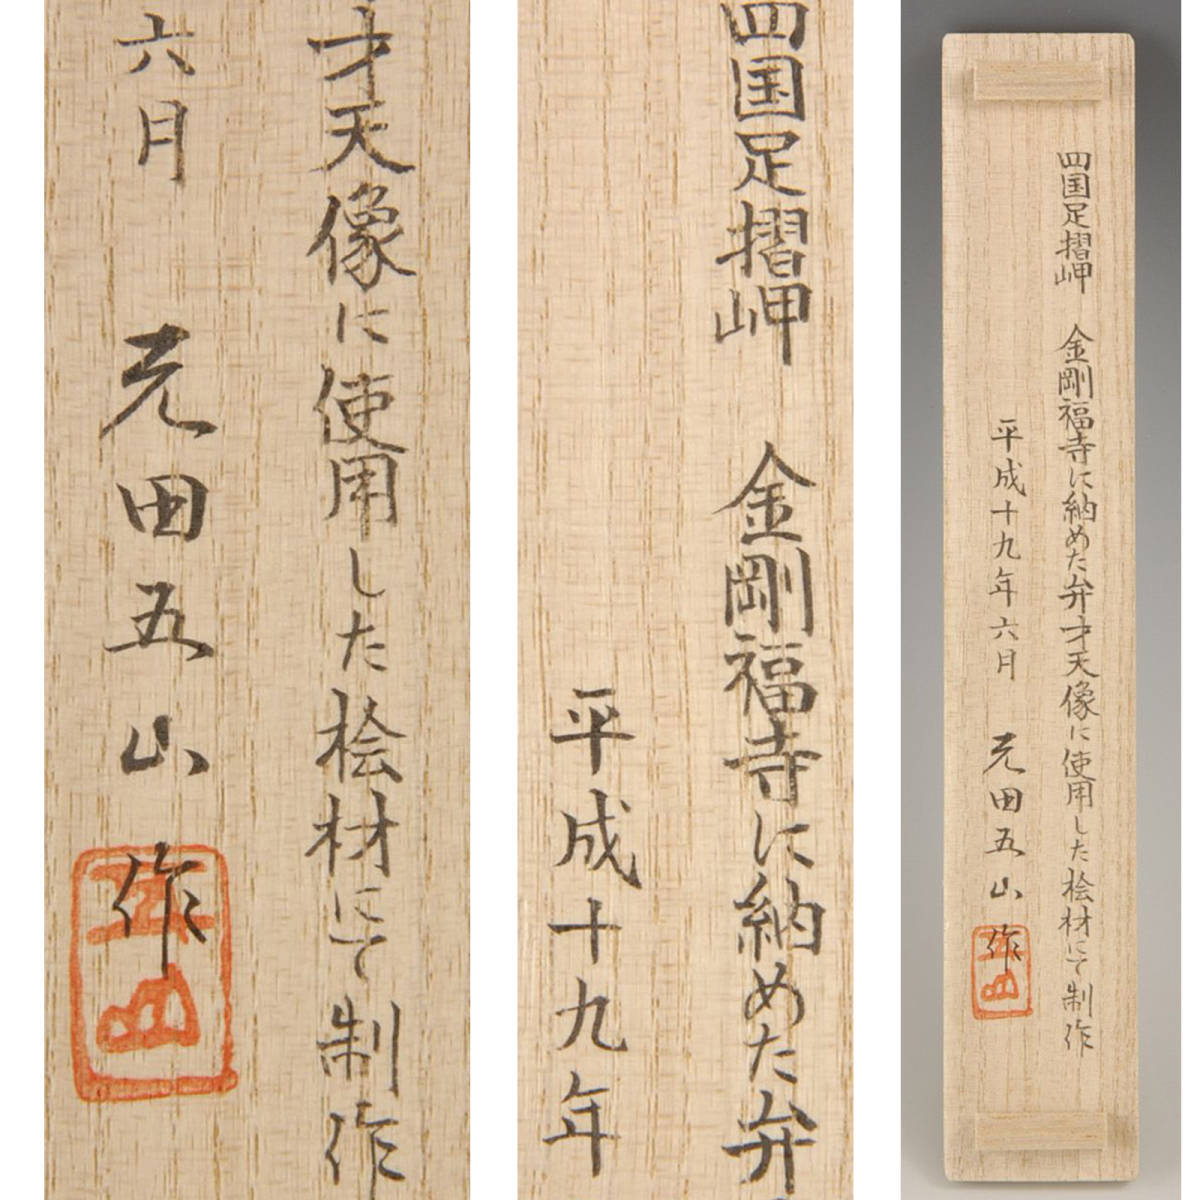 才天像に使用した桧材にて制作
六月 元田五山 作
五山
四国足摺岬 金剛福寺に納めた弁
平成十九年
四国足摺岬 金剛福寺に納めた弁才天像に使用した桧材にて制作
平成十九年六月 元田五山 作
五山